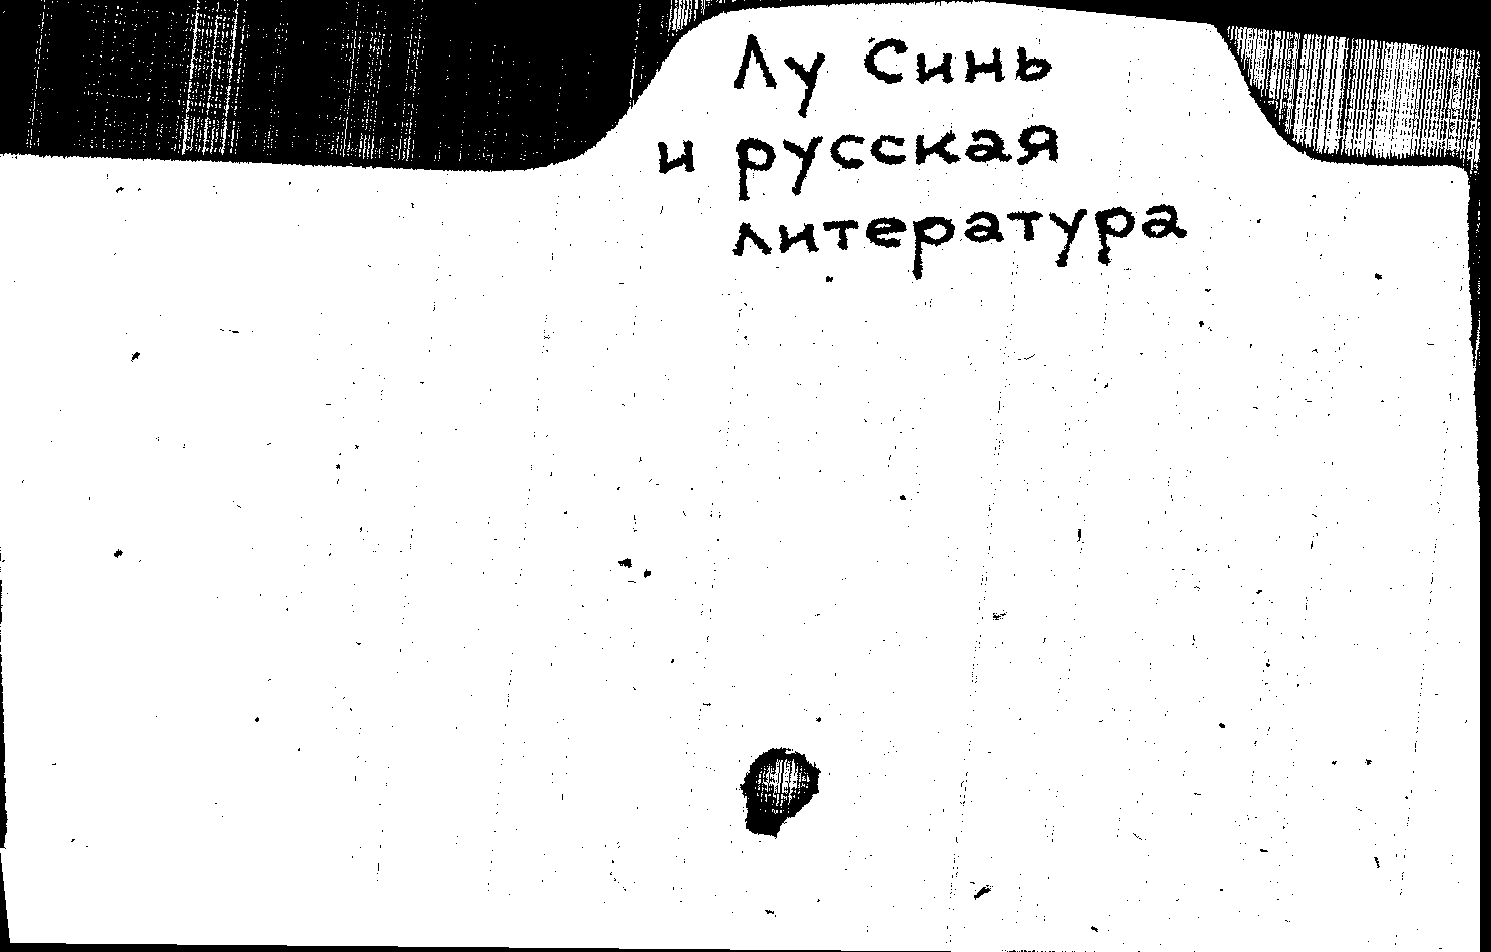 Лу Синь
и русская
литература